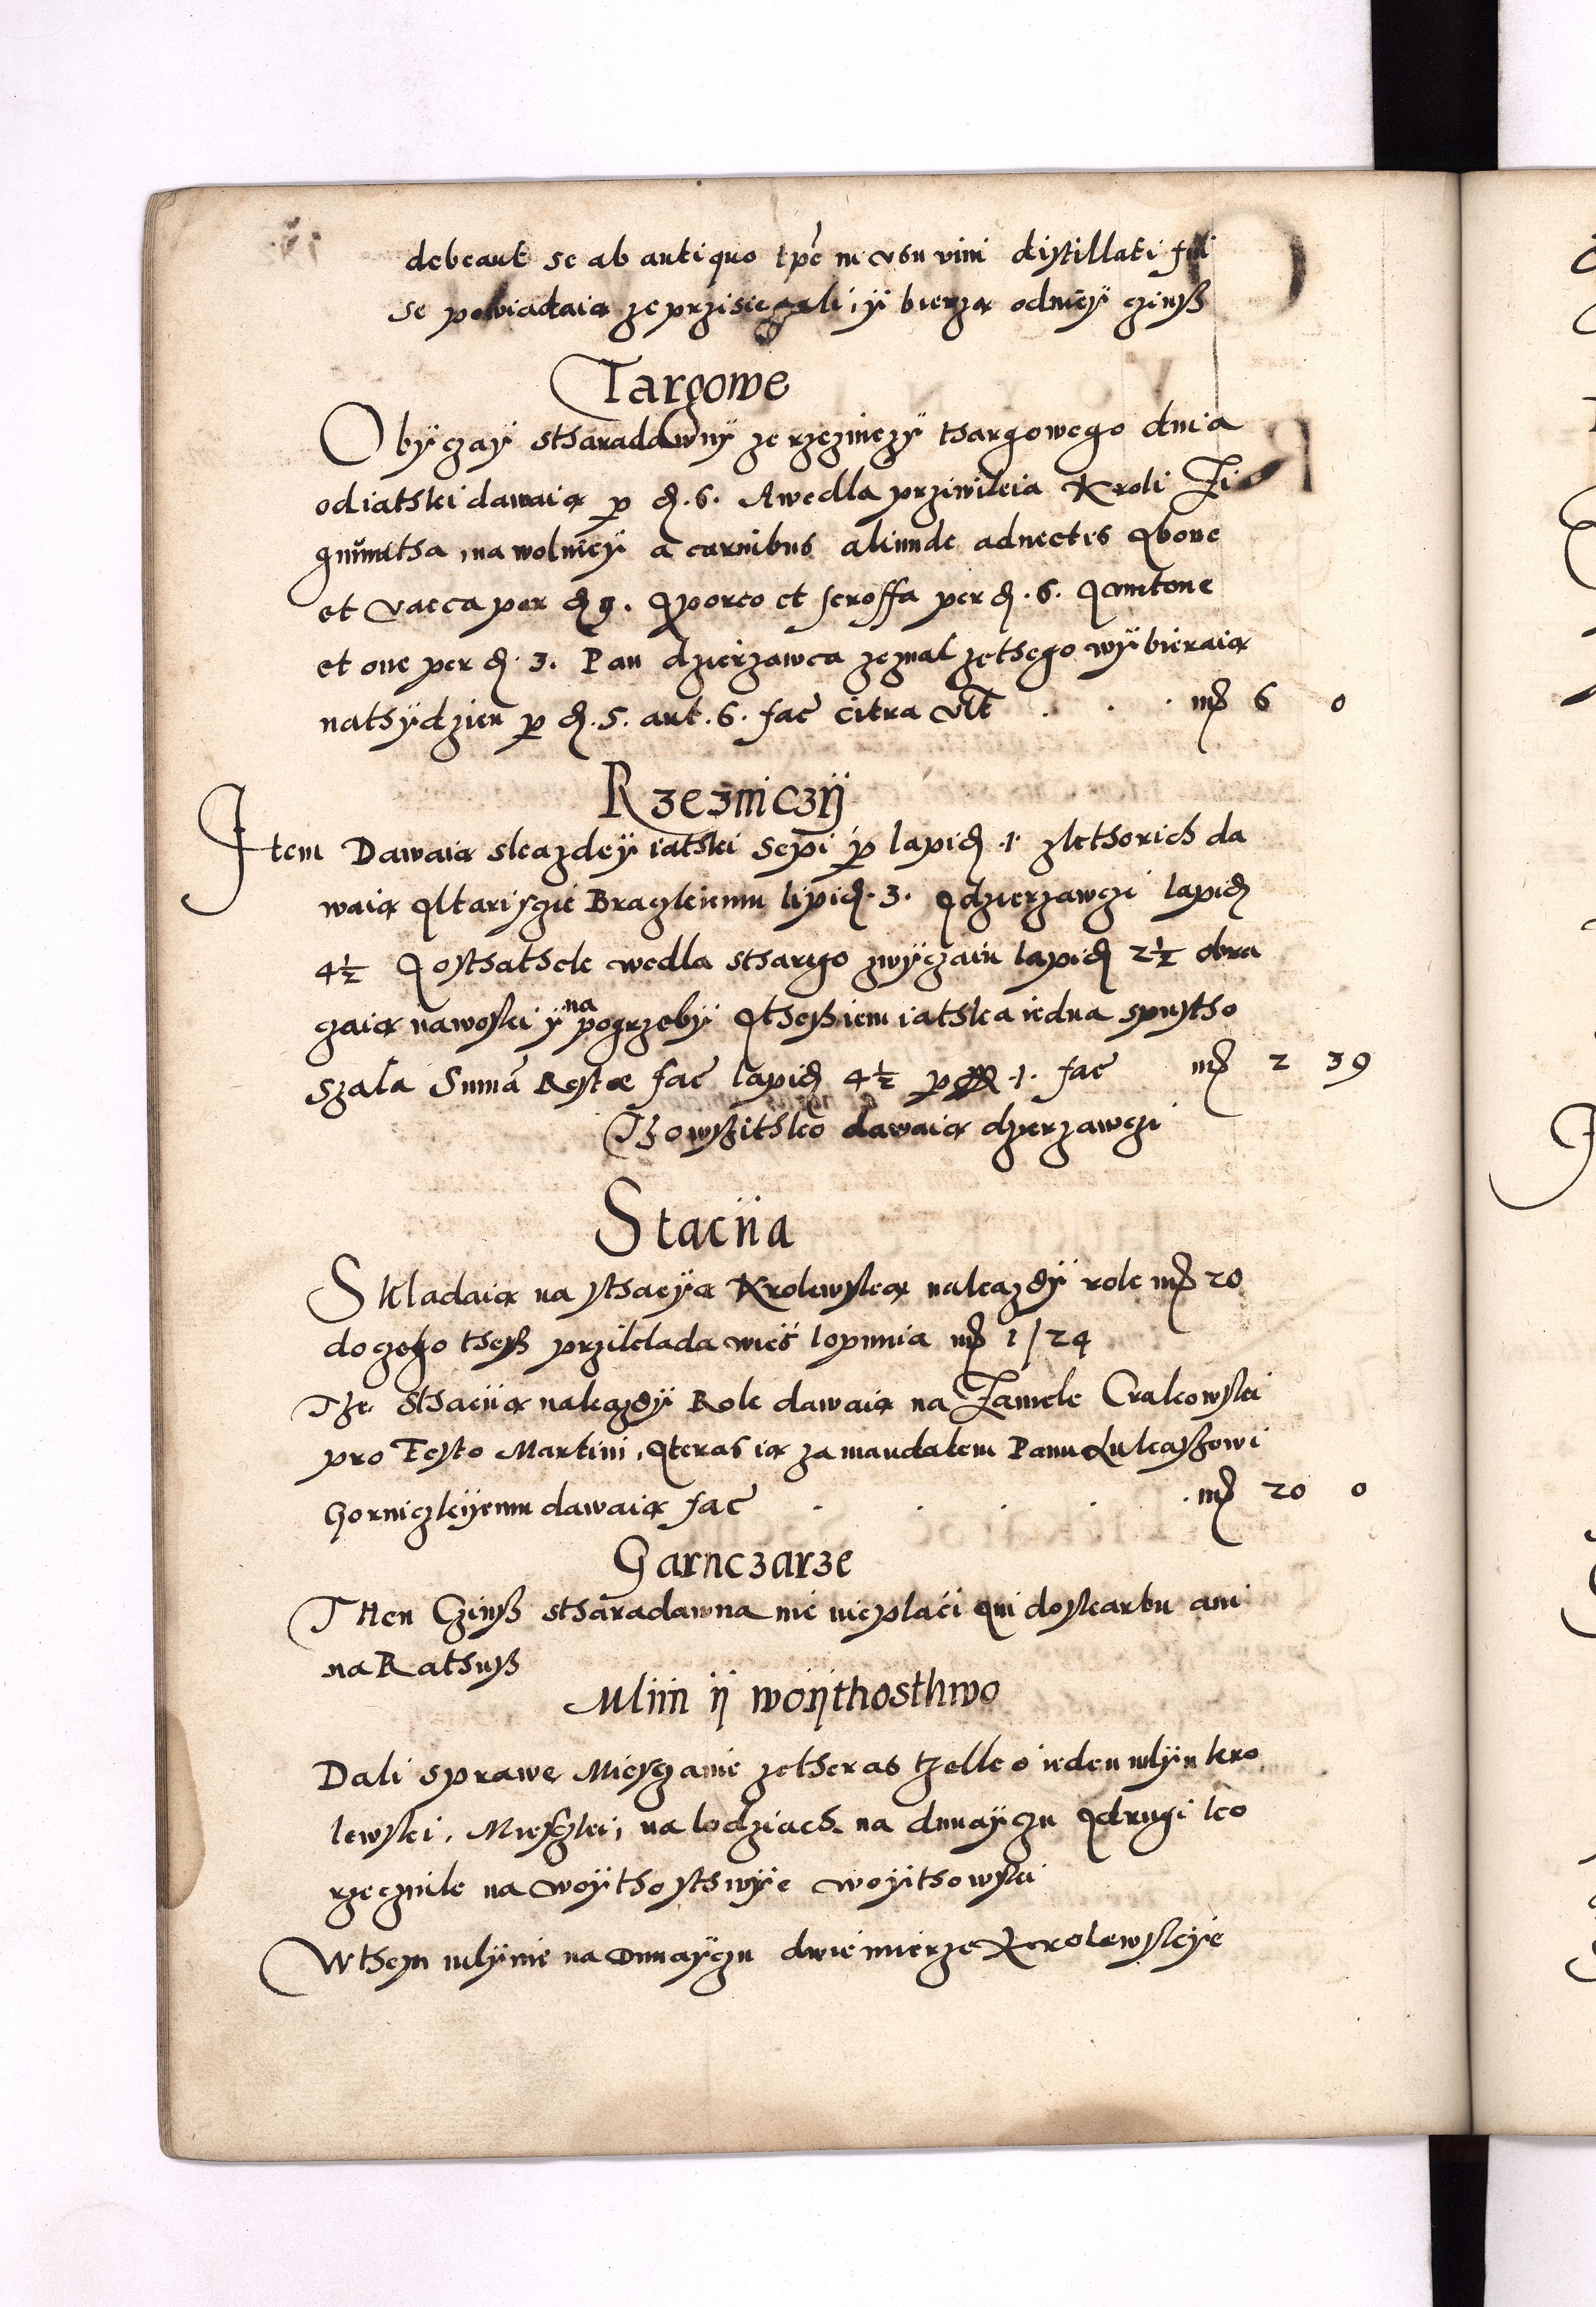 debeant se ab antiquo tpe in usu vini distillati fui
se powiadaią ze przisięgali, ÿ bierzą odniey czinß
Targowe
Obÿczaÿ stharadawnÿ ze rzeznicÿ thargowego dnia
od iatki dawaią p d. 6. A wedla prziwileia Kroli Zi
gmuntha ma wolniey a carnibus aliunde advectis A bove
et vacca per d 9. A porco et scroffa per d. 6. A mutone
et ove per d. 3. Pan dzierzawca zeznal ze thego wÿbieraią
na thÿdzien p d. 5. aut. 6. fac citra vlt . . . mr 6 0
Rzezniczÿ
Item Dawaią s kazdeÿ iatki sepi p lapid. 1. z kthorich da
waią Altariscie Braczkiemu lapid. 3. A dzierzawczi lapid
4½ A osthathek wedla stharego zwÿczaiu lapid 2½ obra
czaią na woski ÿ na pogrzebÿ A theß iem iathka iedna spustho
szala Suma Restae fac lapid 4½ p 1. fac mr 2 39
Tho wszithko dawaią dzierzawczi
Staciia
Skladaią na sthacÿą Krolewską na kazdÿ rok mr 20
do czego theß przikłada wieś lopunia mr 1/24
The sthaciią na kazdÿ Rok dawaią na Zamek Crakowski
pro Festo Martini, A teras ią za mandatem Panu Lukaszowi
Gorniczkÿemu dawaią fac . . . . mr 20 0
Garnczarze
Then Czinß stharadawna nic nie placi ani do skarbu ani
na Rathuß
Mliin ÿ woÿthosthwo
Dali sprawe Miesczanie ze theras tzelko ieden mlÿn kro
lewski, Miesczki, na lodziach na dunayczu A drugi ko
rzecznik na woÿthosthwÿe woÿthowski
W them mlÿnie na Dunayczu dwie mierze Krolewskÿe